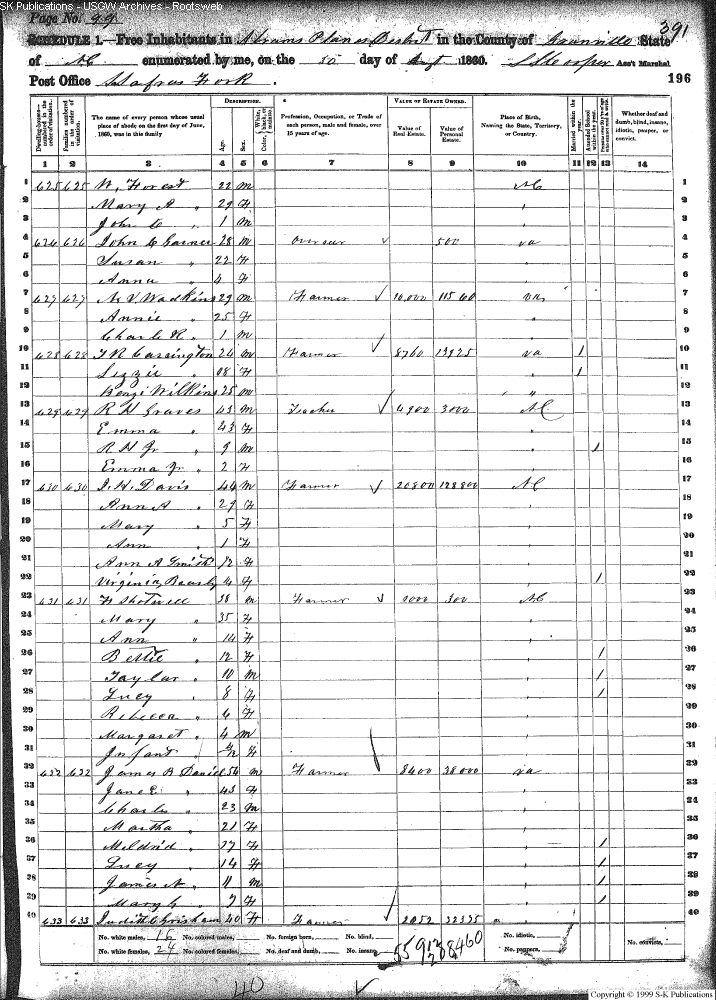 SK Publications - USGW Archives - Rootsweb
Page No. 99
391
SCHEDULE 1.—Free Inhabitants in Abrams Plains District in the County of Granville State
of NC enumerated by me, on the 10 day of Augt 1860. Ass't Marshal
Post Office
196
Dwelling-houses—numbered in the order of visitation.
Families numbered in the order of visitation.
The name of every person whose usual place of abode on the first day of June, 1860, was in this family
DESCRIPTION.
Age.
Sex.
White, Color, black, or mulatto.
Profession, Occupation, or Trade of each person, male and female, over 15 years of age.
VALUE OF ESTATE OWNED.
Value of Real Estate.
Value of Personal Estate.
Place of Birth, Naming the State, Territory, or Country.
Married within the year.
Attended School within the year.
Whether deaf and dumb, blind, insane, idiotic, pauper, or convict.
1 2 3 4 5 6 7 8 9 10 11 12 13 14
1 625 625 W. Forest 22 m NC 1
2 Mary A " 29 f 2
3 John C " 1 m 3
4 626 626 John C Garner 28 m Overseer 500 va 4
5 Susan " 22 f 5
6 Anna " 4 f 6
7 627 627 N V Wadkins 29 m Farmer 11560 va 7
8 Annie " 25 f 8
9 Charls R " 1 m 9
10 628 628 T R Carrington 26 m Farmer 8760 13925 va 1 10
11 Lizzie " 18 f 1 11
12 Benj Wilkins 25 m " 12
13 629 629 R H Graves 43 m Teacher 4900 3000 NC 13
14 Emma " 43 f 14
15 R H Jr " 9 m 1 15
16 Emma Jr " 2 f 16
17 630 630 J. H. Davis 44 m Farmer 20800 128800 NC 17
18 Ann A " 29 f 18
19 Mary " 5 f 19
20 Ann " 1 f 20
21 Ann A Smith 12 f 21
22 Virginia 14 f 1 22
23 631 631 F Shotwell 38 m Farmer 300 NC 23
24 Mary " 35 f 24
25 Ann " 14 f 25
26 Bettie " 12 f 1 26
27 Taylor " 10 m 1 27
28 Lucy " 8 f 1 28
29 Rebecca " 6 f 29
30 Margaret " 4 m 30
31 Infant " f 31
32 632 632 James B Daniel 54 m Farmer 8400 38000 va 32
33 Jane E " 43 f 33
34 Charls " 23 m 34
35 Martha " 21 f 35
36 Mildrid " 17 f 1 36
37 Lucy " 14 f 1 37
38 James N " 11 m 1 38
39 Mary C " 7 f 1 39
40 633 633 Judith Grisham 40 f Farmer 2052 32335 40
No. white males, 16 No. colored males, No. foreign born, No. blind, No. idiotic, No. convicts,
No. white females, 24 No. colored females, No. deaf and dumb, No. insane, No. paupers,
Copyright © 1999 S-K Publications